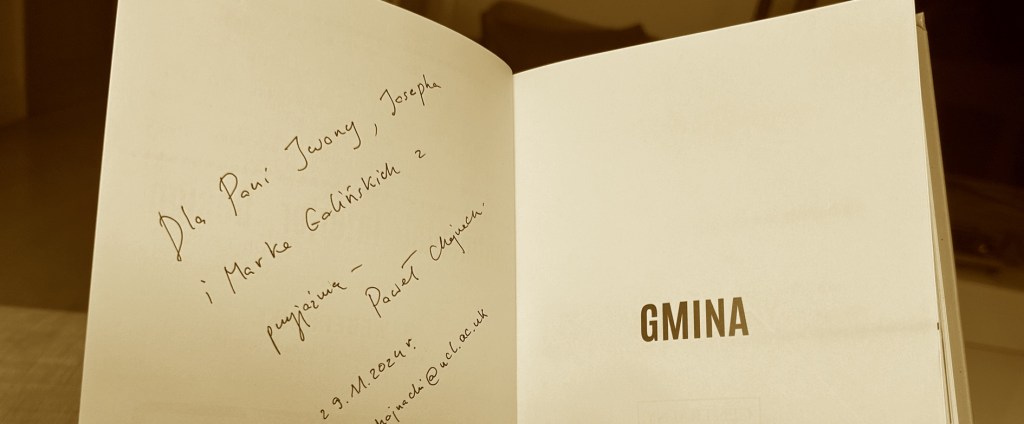 Dla Pani Iwony, Josepha
i Marka Galińskich z
przyjaźnią –
Paweł Chojnacki
29.11.2024 r.
chojnacki@ucl.ac.uk
GMINA